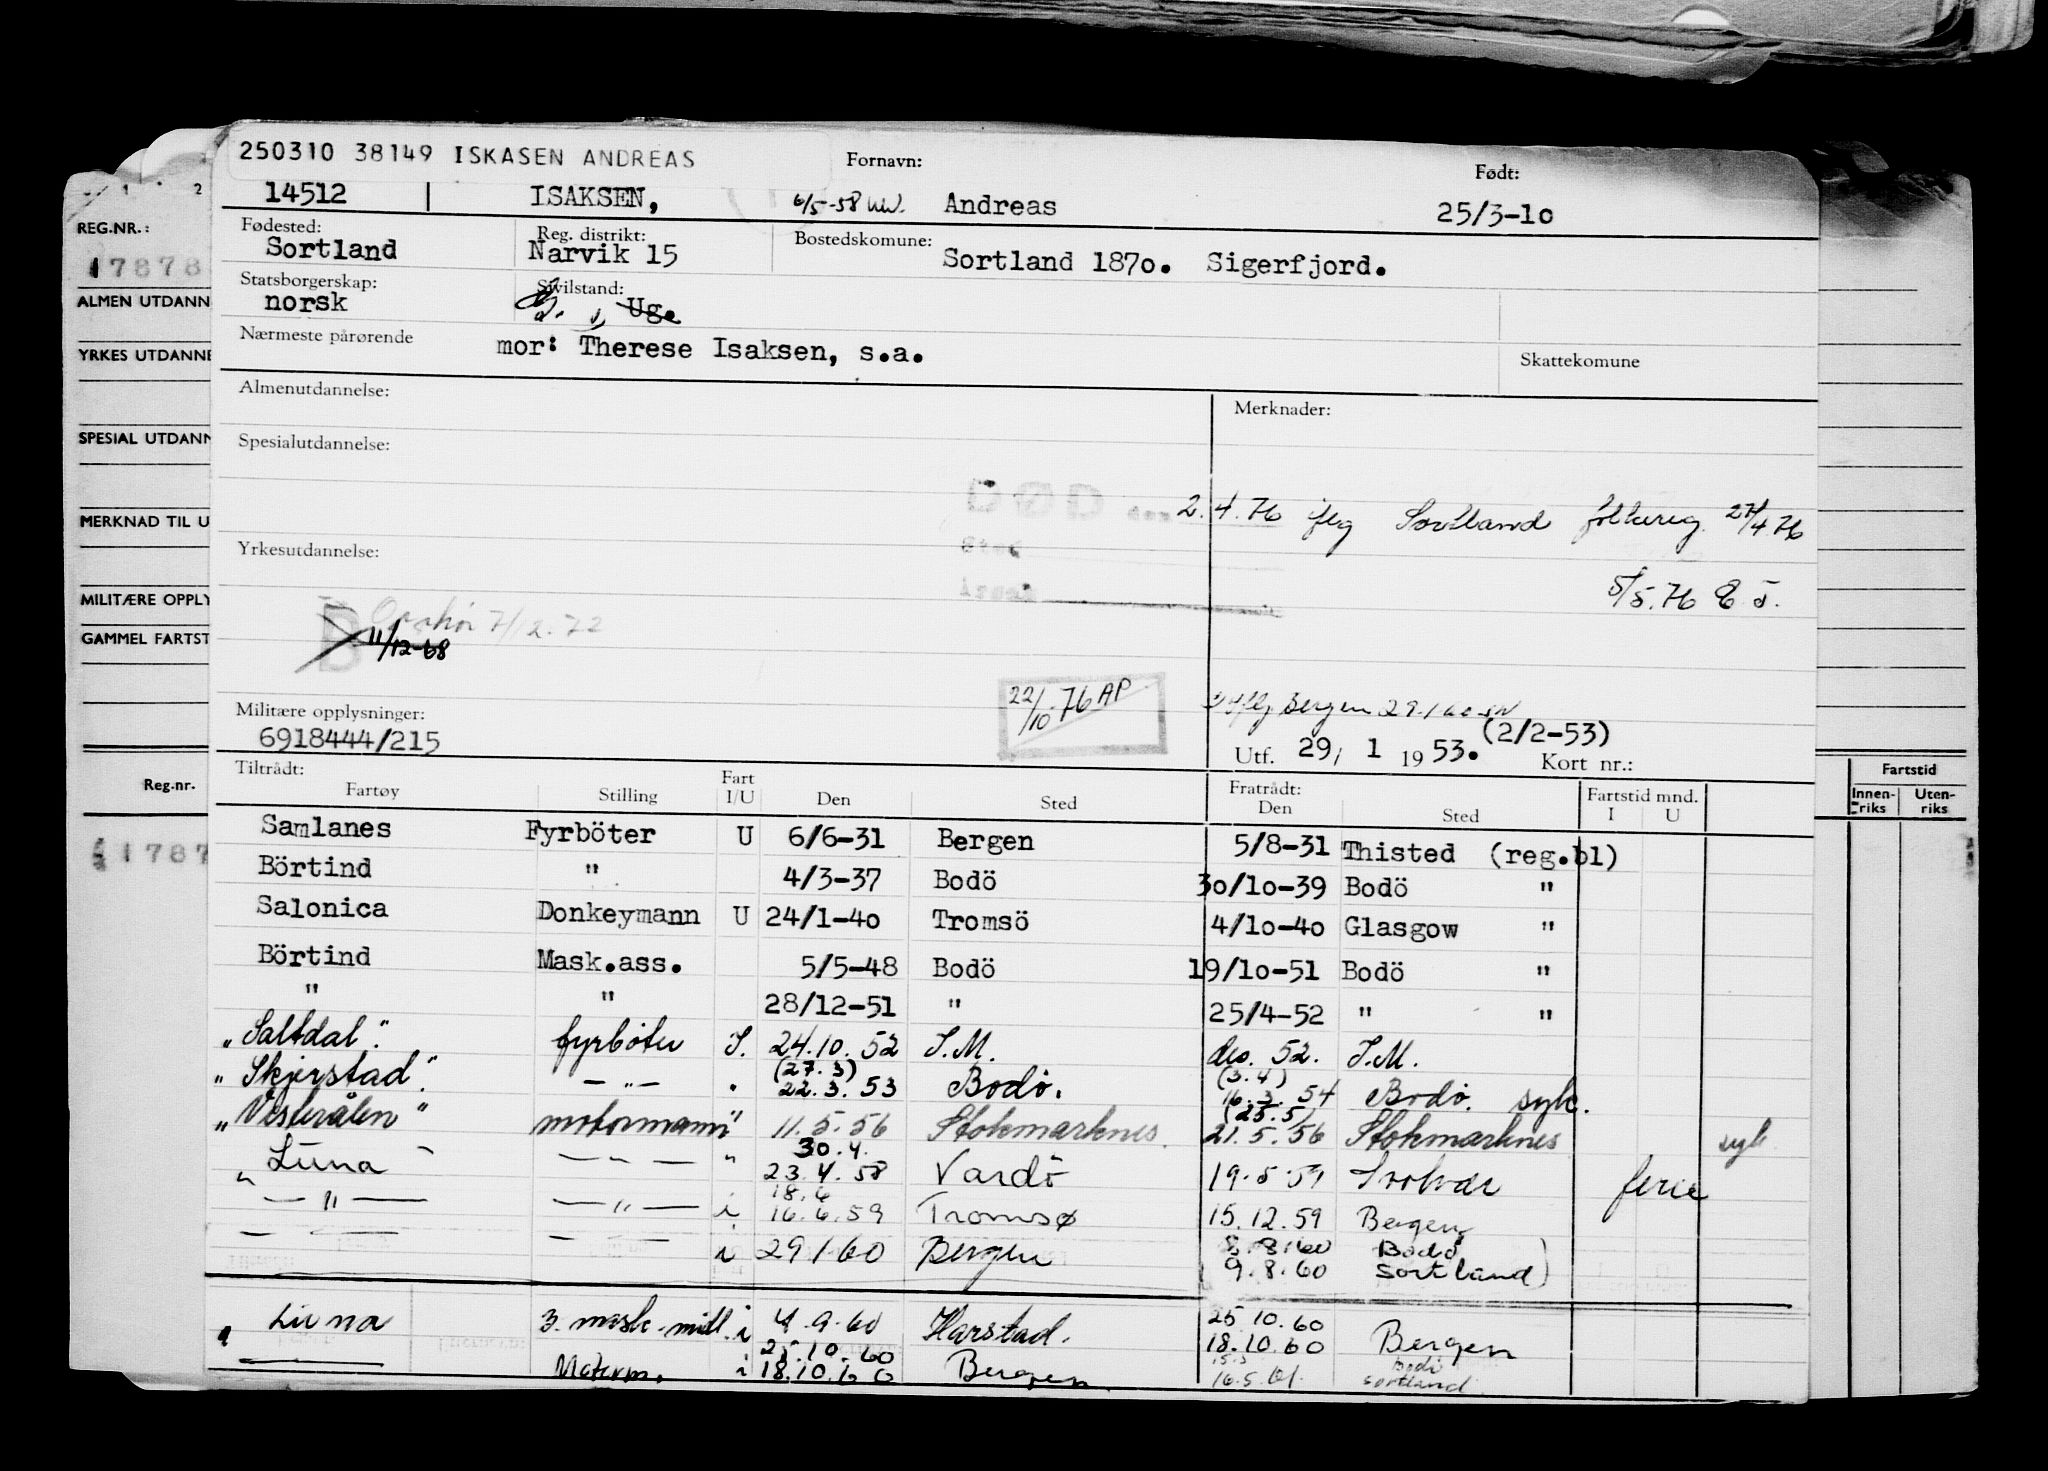 250310 38149 ISKASEN ANDREAS
Fornavn:
Født:
14512 ISAKSEN, 6/5-58 Andreas 25/3-10
Fødested: Reg. distrikt: Bostedskomune:
Sortland Narvik 15 Sortland 1870. Sigerfjord.
Statsborgerskap: Sivilstand:
norsk Uge
Nærmeste pårørende mor: Therese Isaksen, s.a.
Skattekomune
Almenutdannelse: Merknader:
Spesialutdannelse:
2.4.76 iflg Sortland folkereg. 27/4 76
Yrkesutdannelse:
5/5.76 E.J.
7/12.72
B 11/12-68
22/10.76 AP
Militære opplysninger: iflg Bergen 29.1 60
6918444/215 (2/2-53)
Utf. 29/ 1 1953. Kort nr.:
Tiltrådt: Fratrådt: Fartstid mnd.
Fartøy Stilling Fart I/U Den Sted Den Sted I U
Samlanes Fyrböter U 6/6-31 Bergen 5/8-31 Thisted (reg.bl)
Börtind " 4/3-37 Bodö 30/10-39 Bodö "
Salonica Donkeymann U 24/1-40 Tromsö 4/10-40 Glasgow "
Börtind Mask.ass. 5/5-48 Bodö 19/10-51 Bodö "
" " 28/12-51 " 25/4-52 " "
"Saltdal". fyrböter I. 24.10.52 I.M. des. 52. I.M.
(27.3) (3.4)
"Skjerstad". — " — " 22.3.53 Bodö. 16.3.54 Bodö. syk.
(25.5)
"Vesterålen" motormann " 11.5.56 Stokmarknes. 21.5.56 Stokmarknes syk
30.4.
"Luna" — " — " 23.4.58 Vardö 19.5.59 Svolvær ferie
18.6
— " — — " — i 16.6.59 Tromsø 15.12.59 Bergen
— — — — i 29 1 60 Bergen 8.8.60 Bodö
9.8.60 Sortland)
Luna 3. mask.-mill. i 4.9.60 Harstad. 25.10.60
25.10.60 18.10.60 Bergen
" Motorm. i 18.10.60 Bergen 15.5 Bodö
16.5.61. Sortland
REG.NR.:
17878
ALMEN UTDANN
YRKES UTDANNE
SPESIAL UTDANN
MERKNAD TIL U
MILITÆRE OPPLY
GAMMEL FARTST
Reg.nr.
1787
Fartstid
Innen-riks Uten-riks